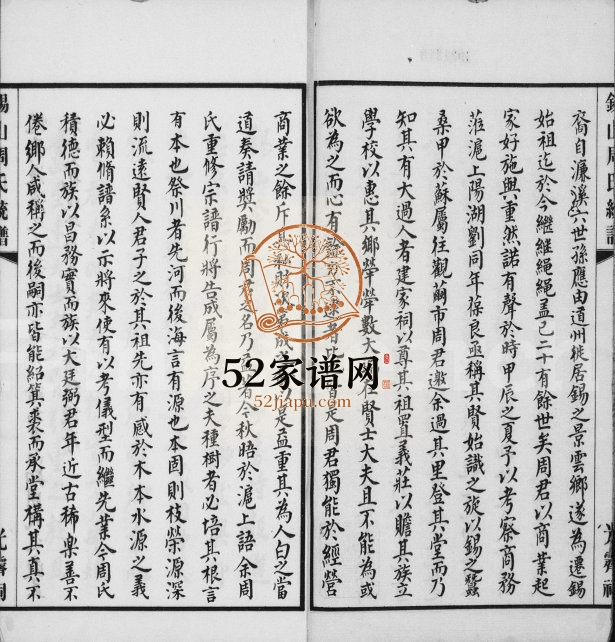 裔自濂溪六世孫應由道州徙居錫之景雲鄉遂為遷錫
始祖迄於今繼繼繩繩蓋已二十有餘世矣周君以商業起
家好施與重然諾有聲於時甲辰之夏予以考察商務
蒞滬上陽湖劉同年葆良亟稱其賢始識之旋以錫之蠶
桑甲於蘇屬往觀繭市周君邀余過其里登其堂而乃
知其有大過人者建家祠以尊其祖置義莊以贍其族立
學校以惠其鄉犖犖數大 在賢士大夫且不能為或
欲為之而心有 是周君獨能於經營
商業之餘斥 成 是益重其為人白之當
道奏請獎勵而周君之名乃益 今秋晤於滬上語余周
氏重修宗譜行將告成屬為序之夫種樹者必培其根言
有本也祭川者先河而後海言有源也本固則枝榮源深
則流遠賢人君子之於其祖先亦有感於木本水源之義
必賴脩譜系以示將來使有以考儀型而繼先業今周氏
積德而族以昌務實而族以大廷弼君年近古稀樂善不
倦鄉人咸稱之而後嗣亦皆能紹箕裘而承堂構其真不
錫山周氏統譜
錫山周氏統譜
光霽祠
光霽祠
52家谱网
52jiapu.com